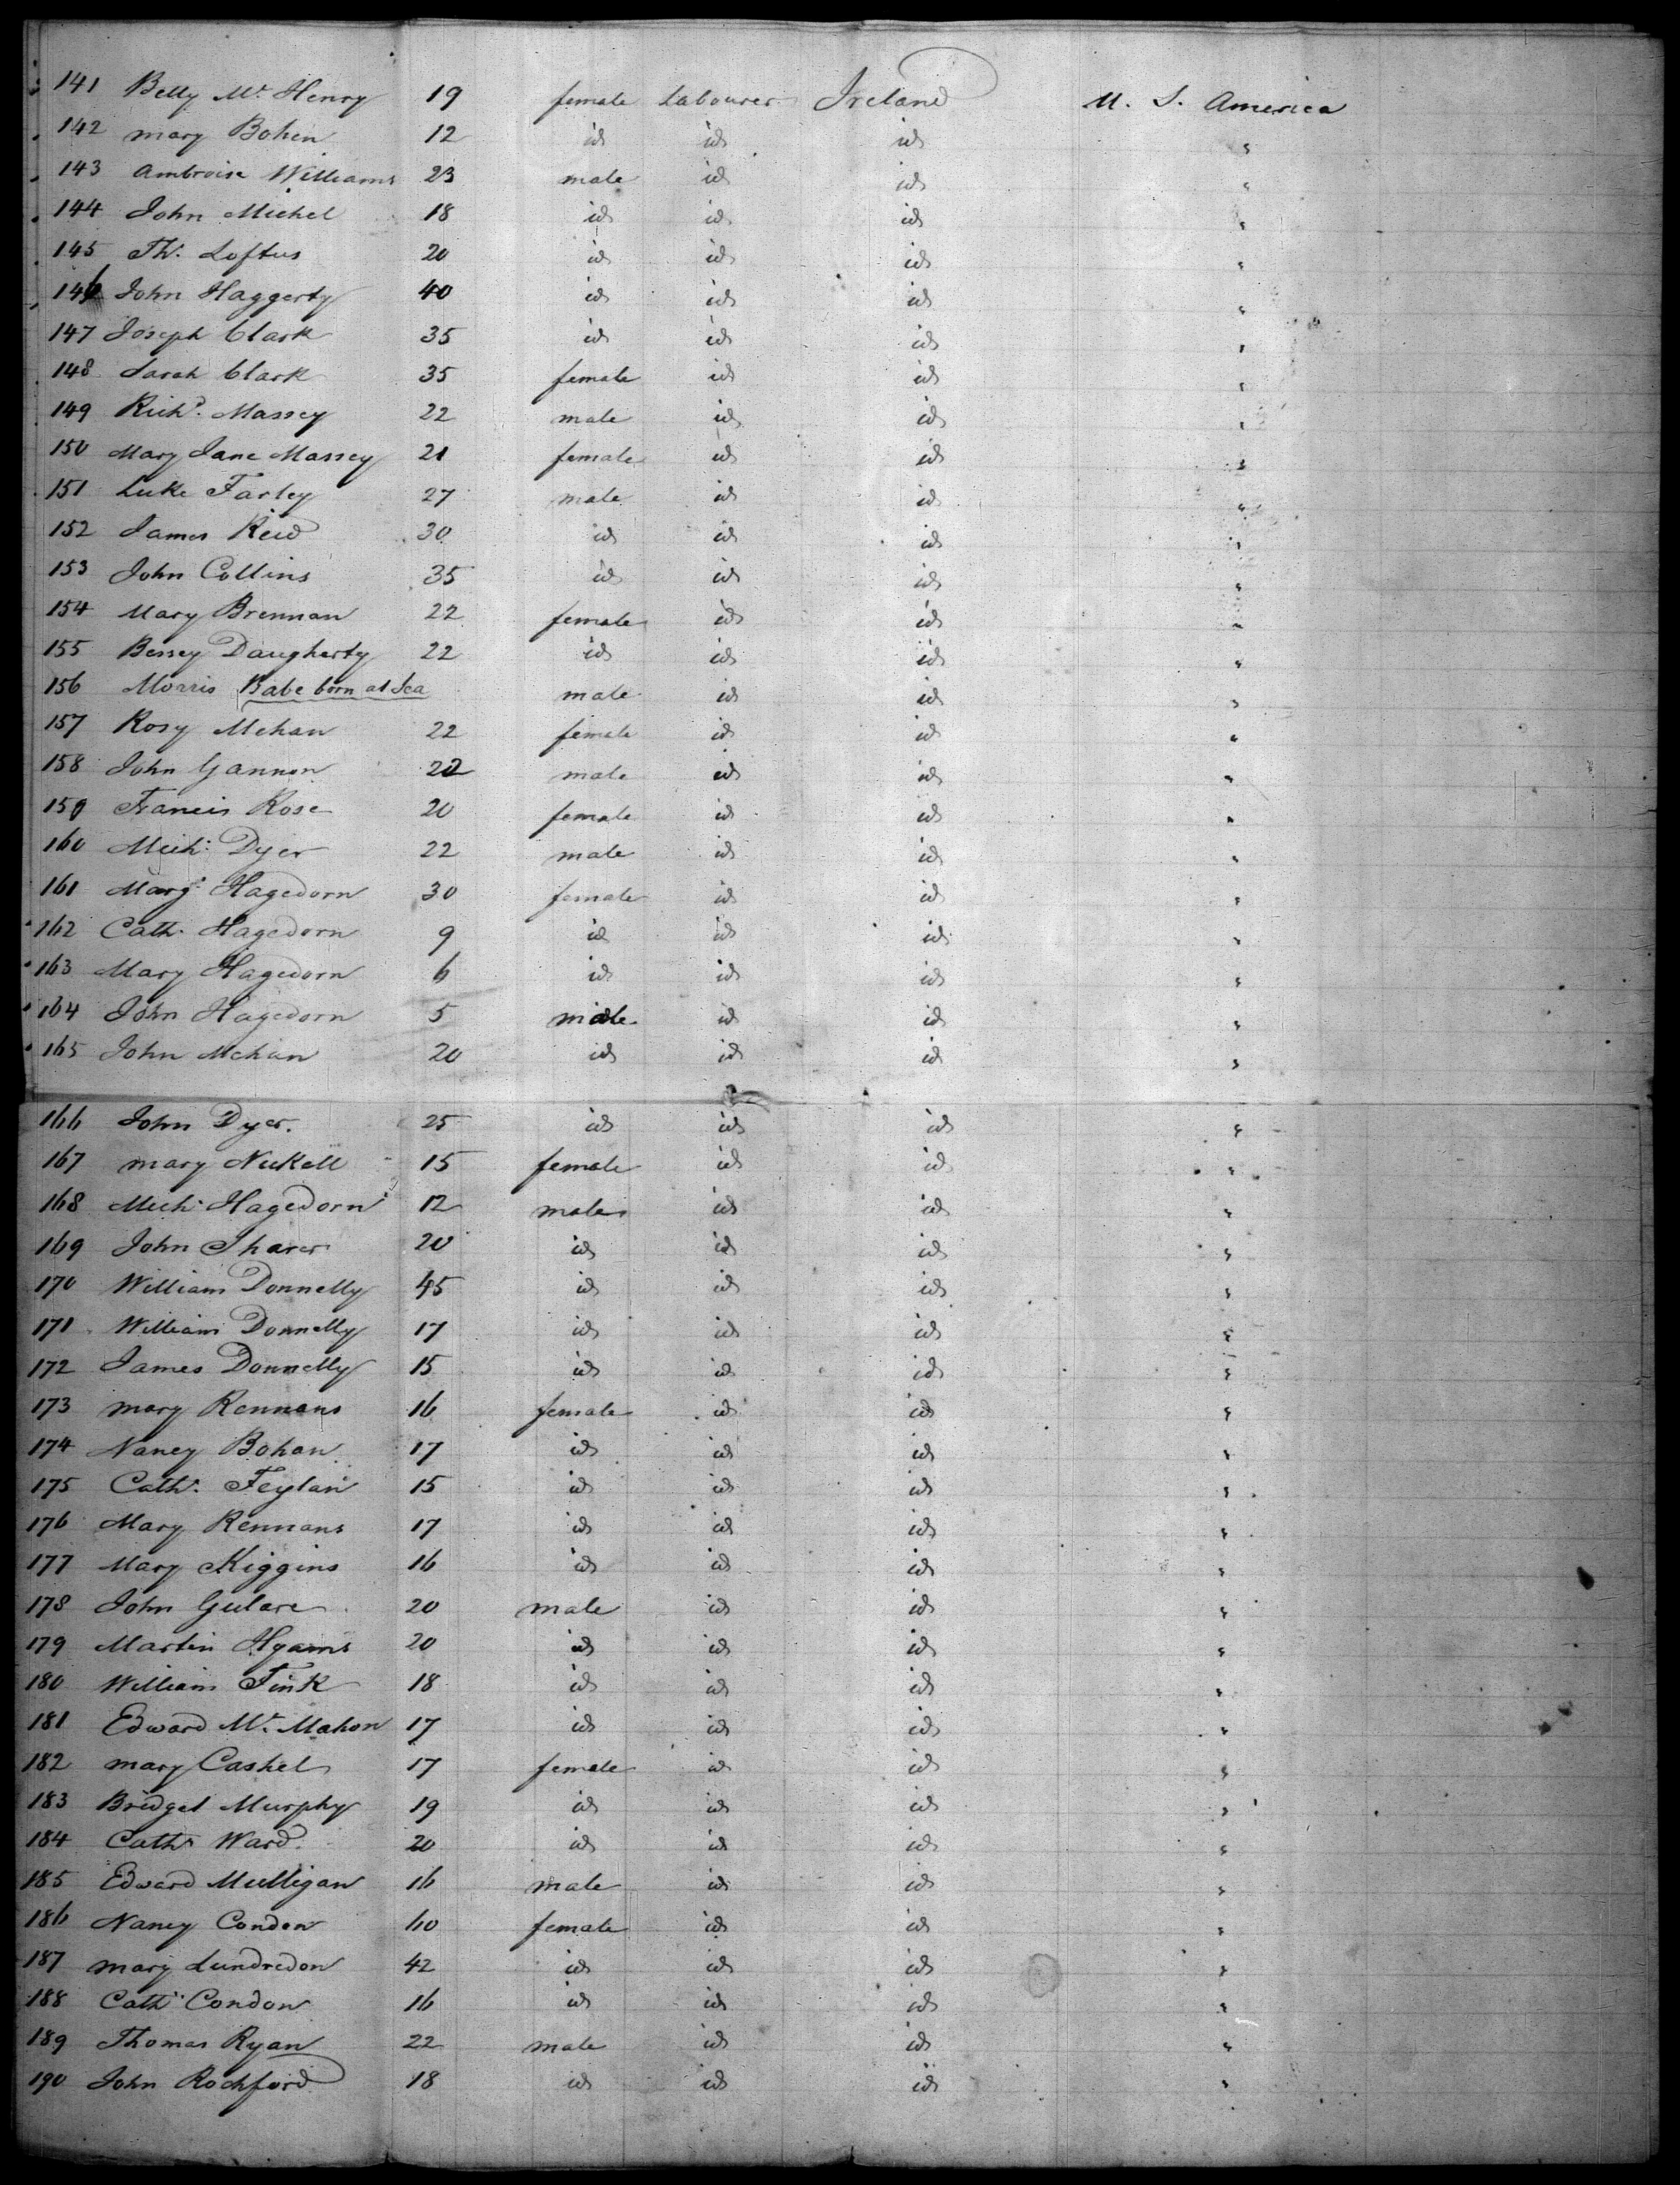 141 Betty Mc Henry 19 female Labourer Ireland U. S. America
142 mary Bohen 12 id id id "
143 Ambroise Williams 23 male id id "
144 John Michel 18 id id id "
145 Th. Loftus 20 id id id "
146 John Haggerty 40 id id id "
147 Joseph Clark 35 id id id "
148 Sarah Clark 35 female id id "
149 Richd. Massey 22 male id id "
150 Mary Jane Massey 21 female id id "
151 Luke Farley 27 male id id "
152 James Reid 30 id id id "
153 John Collins 35 id id id "
154 Mary Brennan 22 female id id "
155 Bessey Daugherty 22 id id id "
156 Morris Babe born at Sea male id id "
157 Rosy Mehan 22 female id id "
158 John Gannon 22 male id id "
159 Francis Rose 20 female id id "
160 Mich. Dyer 22 male id id "
161 Marg. Hagedorn 30 female id id "
162 Cath. Hagedorn 9 id id id "
163 Mary Hagedorn 6 id id id "
164 John Hagedorn 5 male id id "
165 John Mehan 20 id id id "
166 John Dyer. 25 id id id "
167 mary Nickell 15 female id id "
168 Mich. Hagedorn 12 male id id "
169 John Sharer 20 id id id "
170 William Donnelly 45 id id id "
171 William Donnelly 17 id id id "
172 James Donnelly 15 id id id "
173 mary Rennans 16 female id id "
174 Nancy Bohan 17 id id id "
175 Cath. Feylan 15 id id id "
176 Mary Rennans 17 id id id "
177 Mary Kiggins 16 id id id "
178 John Gulare 20 male id id "
179 Martin Hyams 20 id id id "
180 William Fink 18 id id id "
181 Edward Mc. Mahon 17 id id id "
182 mary Cashel 17 female id id "
183 Bridget Murphy 19 id id id "
184 Cath. Ward 20 id id id "
185 Edward Mulligan 16 male id id "
186 Nancy Condon 60 female id id "
187 mary Lundredon 42 id id id "
188 Cath. Condon 16 id id id "
189 Thomas Ryan 22 male id id "
190 John Rochford 18 id id id "